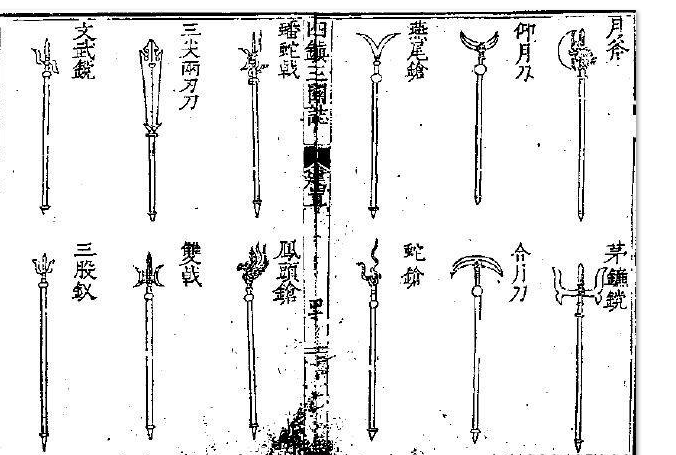 月斧
仰月刀
燕尾鎗
茅鐮鎲
合月刀
蛇鎗
四鎮三關誌
蟠蛇戟
三尖兩刃刀
文武鎲
鳳頭鎗
雙戟
三股釵